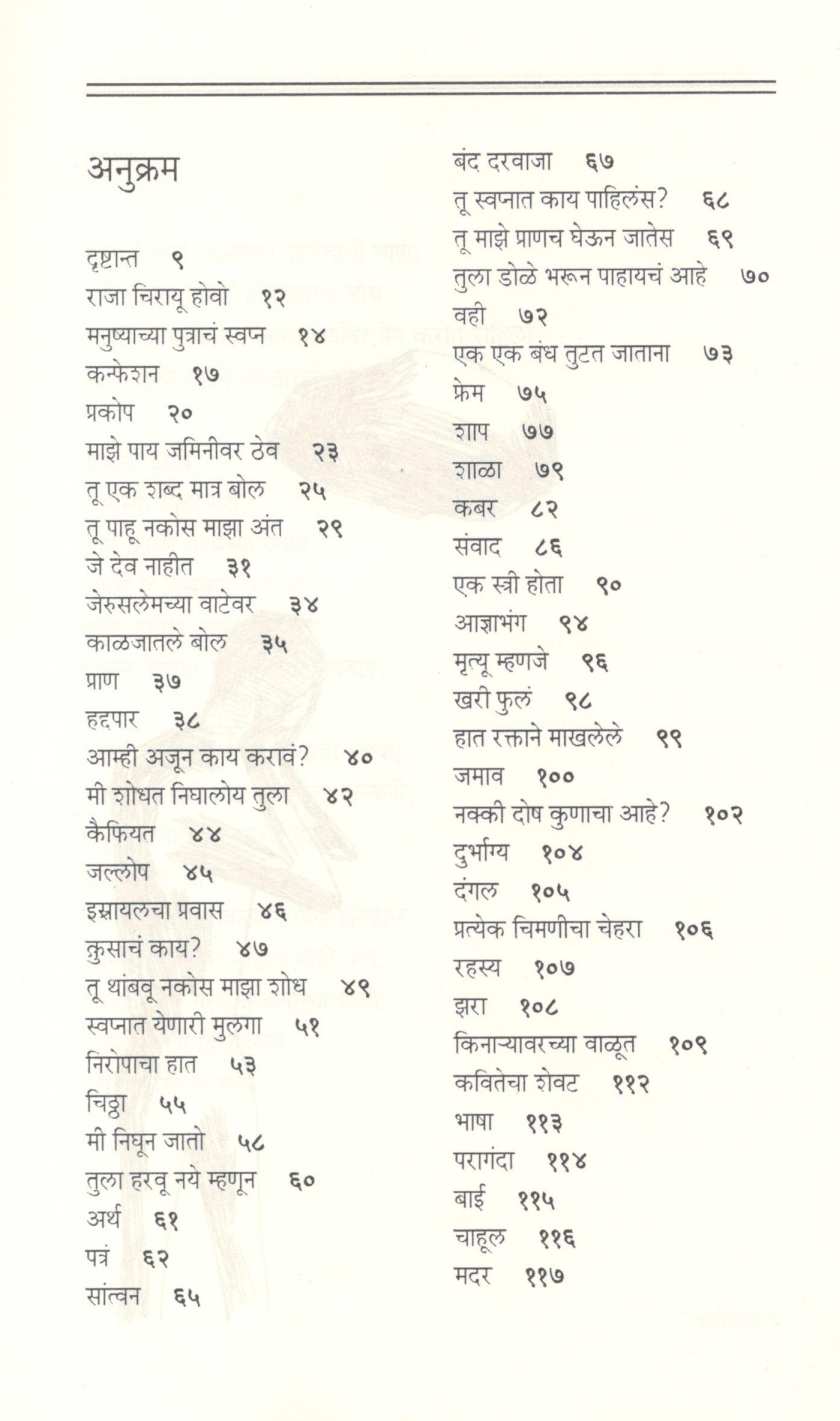 अनुक्रम
दृष्टान्त ९
राजा चिरायू होवो १२
मनुष्याच्या पुत्राचं स्वप्न १४
कन्फेशन १७
प्रकोप २०
माझे पाय जमिनीवर ठेव २३
तू एक शब्द मात्र बोल २५
तू पाहू नकोस माझा अंत २९
जे देव नाहीत ३१
जेरुसलेमच्या वाटेवर ३४
काळजातले बोल ३५
प्राण ३७
हद्दपार ३८
आम्ही अजून काय करावं? ४०
मी शोधत निघालोय तुला ४२
कैफियत ४४
जल्लोप ४५
इस्रायलचा प्रवास ४६
क्रुसाचं काय? ४७
तू थांबवू नकोस माझा शोध ४९
स्वप्नात येणारी मुलगा ५१
निरोपाचा हात ५३
चिठ्ठा ५५
मी निघून जातो ५८
तुला हरवू नये म्हणून ६०
अर्थ ६१
पत्रं ६२
सांत्वन ६५
बंद दरवाजा ६७
तू स्वप्नात काय पाहिलंस? ६८
तू माझे प्राणच घेऊन जातेस ६९
तुला डोळे भरून पाहायचं आहे ७०
वही ७२
एक एक बंध तुटत जाताना ७३
फ्रेम ७५
शाप ७७
शाळा ७९
कबर ८२
संवाद ८६
एक स्त्री होता ९०
आज्ञाभंग ९४
मृत्यू म्हणजे ९६
खरी फुलं ९८
हात रक्ताने माखलेले ९९
जमाव १००
नक्की दोष कुणाचा आहे? १०२
दुर्भाग्य १०४
दंगल १०५
प्रत्येक चिमणीचा चेहरा १०६
रहस्य १०७
झरा १०८
किनाऱ्यावरच्या वाळूत १०९
कवितेचा शेवट ११२
भाषा ११३
परागंदा ११४
बाई ११५
चाहूल ११६
मदर ११७